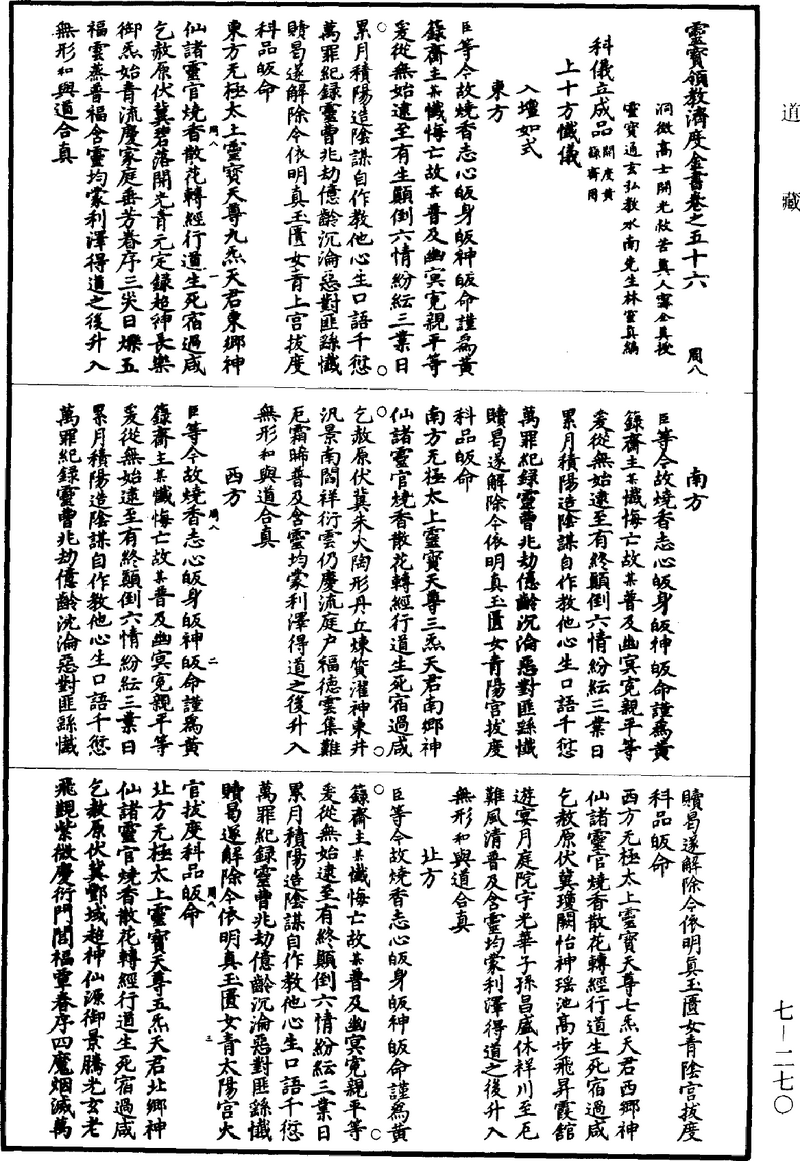 道藏
靈寶領教濟度金書卷之五十六 周八
洞微高士開光救苦真人甯全真授
靈寶通玄弘教水南先生林靈真編
科儀立成品 開度黃籙齋用
上十方懺儀
入壇如式
東方
臣等今故燒香志心皈身皈神皈命謹為黃
籙齋主某懺悔亡故某普及幽冥寃親平等
爰從無始逮至有生顛倒六情紛紜三業日
累月積陽造陰謀自作教他心生口語千愆
萬罪紀錄靈曹兆劫億齡沉淪惡對匪繇懺
贖曷遂解除今依明真玉匱女青上宫拔度
科品皈命
東方无極太上靈寶天尊九炁天君東鄉神
仙諸靈官燒香散花轉經行道生死宿過咸
乞赦原伏冀碧落開光青元定録超神長樂
御炁始青流慶家庭垂芳眷序三尖日爍五
福雲蒸普福含靈均蒙利澤得道之後升入
無形和與道合真
周八 一
南方
臣等今故燒香志心皈身皈神皈命謹為黃
籙齋主某懺悔亡故某普及幽冥寃親平等
爰從無始逮至有終顛倒六情紛紜三業日
累月積陽造陰謀自作教他心生口語千愆
萬罪紀録靈曹兆劫億齡沉淪惡對匪繇懺
贖曷遂解除今依明真玉匱女青陽宫拔度
科品皈命
南方无極太上靈寶天尊三炁天君南鄉神
仙諸靈官燒香散花轉經行道生死宿過咸
乞赦原伏冀朱火陶形丹丘煉質濯神東井
汎景南閻祥衍雲仍慶流庭户福德雲集難
厄霜晞普及含靈均蒙利澤得道之後升入
無形和與道合真
西方
周八 二
臣等今故燒香志心皈身皈神皈命謹為黃
籙齋主某懺悔亡故某普及幽冥寃親平等
爰從無始逮至有終顛倒六情紛紜三業日
累月積陽造陰謀自作教他心生口語千愆
萬罪紀録靈曹兆劫億齡沈淪惡對匪繇懺
贖曷遂解除今依明真玉匱女青陰宫拔度
科品皈命
西方无極太上靈寶天尊七炁天君西鄉神
仙諸靈官燒香散花轉經行道生死宿過咸
乞赦原伏冀瓊闕怡神瑶池高步飛昇霞館
遊宴月庭院宇光華子孫昌盛休祥川至厄
難風清普及含靈均蒙利澤得道之後升入
無形和與道合真
北方
臣等今故燒香志心皈身皈神皈命謹為黃
籙齋主某懺悔亡故某普及幽冥寃親平等
爰從無始逮至有終顛倒六情紛紜三業日
累月積陽造陰謀自作教他心生口語千愆
萬罪紀録靈曹兆劫億齡沉淪惡對匪繇懺
贖曷遂解除今依明真玉匱女青太陽宫火
官拔度科品皈命
周八 三
北方无極太上靈寶天尊五炁天君北鄉神
仙諸靈官燒香散花轉經行道生死宿過咸
乞赦原伏冀酆城超神仙源御景騰光玄老
飛觀紫微慶衍門閭福覃眷序四魔烟滅萬
七-二七〇